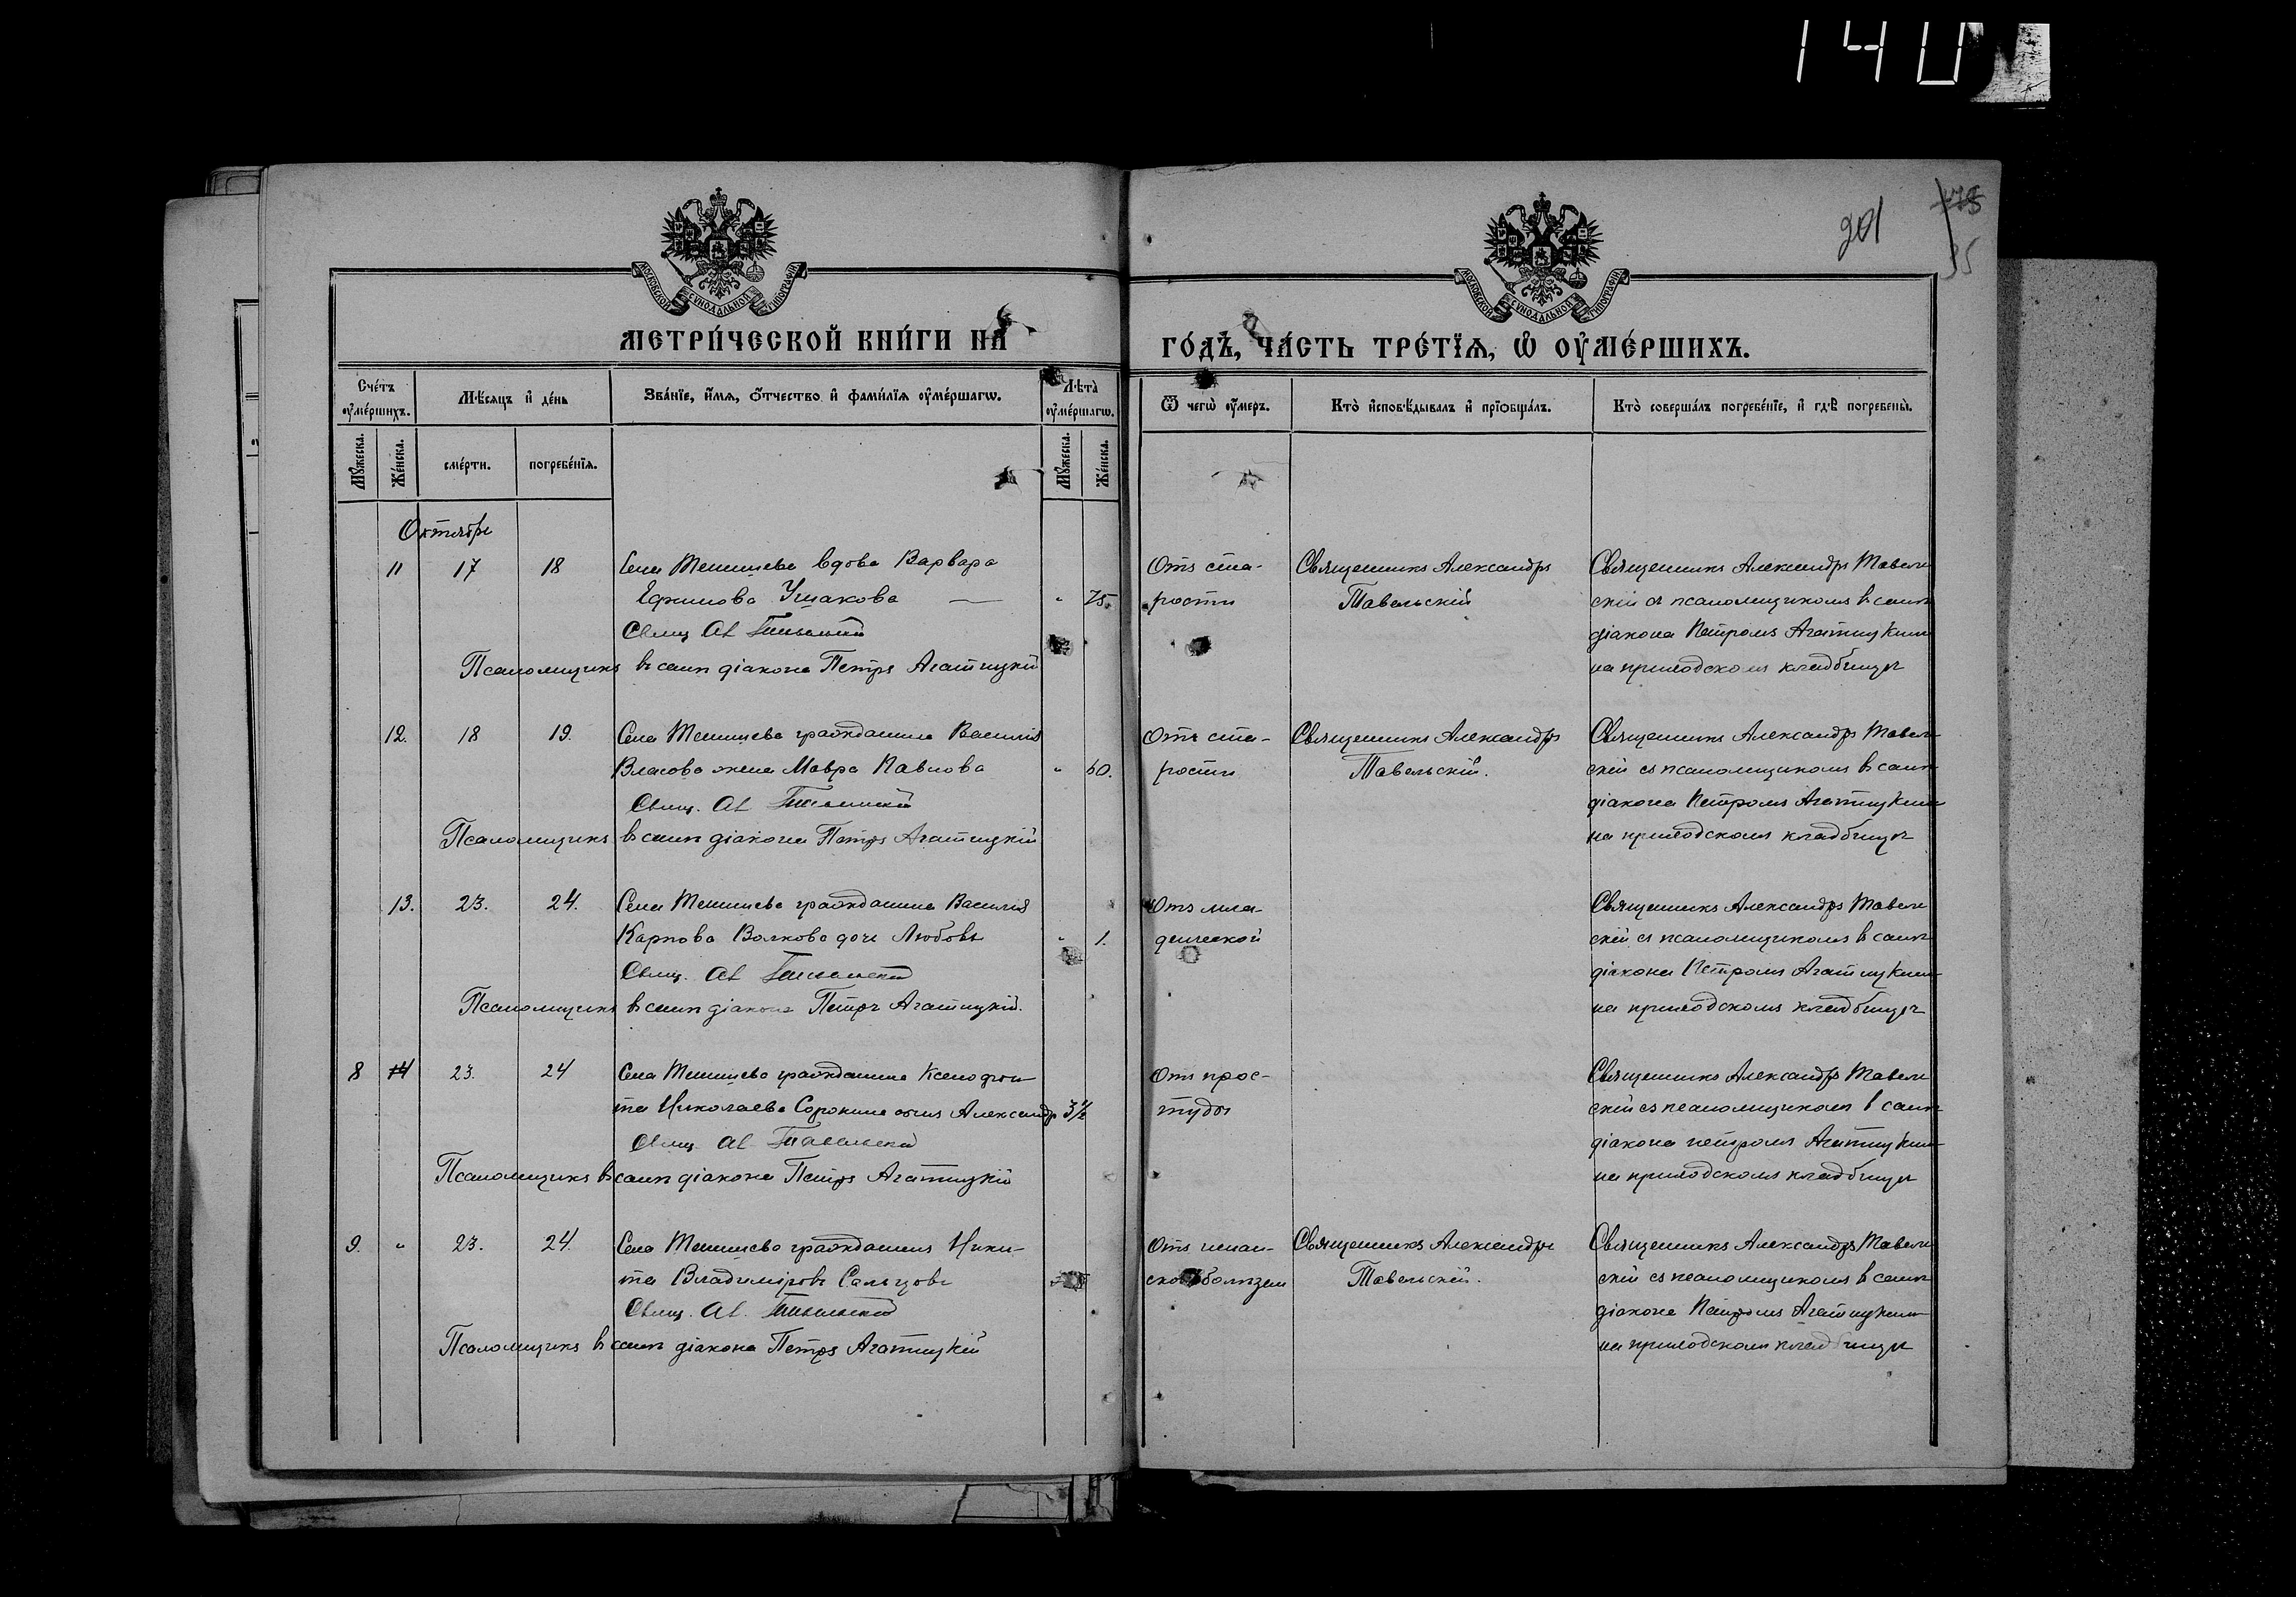 140
201
35
МОСКОВСКОЙ СѴНОДАЛЬНОЙ ТИПОГРАФІИ
МОСКОВСКОЙ СѴНОДАЛЬНОЙ ТИПОГРАФІИ
МЕТРИ́ЧЕСКОЙ КНИ́ГИ НА
ГО́ДЪ, ЧА́СТЬ ТРЕ́ТЇѦ, Ѡ҆ ОУ҆МЕ́РШИХЪ.
Сче́тъ оу҆ме́ршихъ.
Мѣ́сѧцъ и҆ де́нь
Зва́нїе, и҆́мѧ, ѻ҆́тчество и҆ фами́лїѧ оу҆ме́ршагѡ.
Лѣ́та оу҆ме́ршагѡ.
Ѿ чегѡ̀ оу҆́меръ.
Кто̀ и҆сповѣ́дывалъ и҆ прїѡбща́лъ.
Кто̀ соверша́лъ погребе́нїе, и҆ гдѣ̀ погребены̀.
Мꙋ́жеска.
Же́нска.
сме́рти.
погребе́нїѧ.
Мꙋ́жеска.
Же́нска.
Октябрь
11 17 18 Села Тенишева вдова Варвара
Ефимова Ушакова — „ 75.
Свящ. Ал. Тавельский
Псаломщикъ въ санѣ діакона Петръ Агатицкій
Отъ ста-
рости
Священникъ Александръ
Тавельскій
Священникъ Александръ Тавель
скій съ псаломщикомъ въ санѣ
діакона Петромъ Агатицким
на приходскомъ кладбищѣ
12. 18 19. Села Тенишева гражданина Василія
Власова жена Мавра Павлова „ 60.
Свящ. Ал. Тавельский
Псаломщикъ въ санѣ діакона Петръ Агатицкій
Отъ ста-
рости
Священникъ Александръ
Тавельскій.
Священникъ Александръ Тавель
скій съ псаломщикомъ въ санѣ
діакона Петромъ Агатицким
на приходскомъ кладбищѣ
13. 23. 24. Села Тенишева гражданина Василія
Карпова Волкова дочь Любовь „ 1.
Свящ. Ал. Тавельский
Псаломщикъ въ санѣ діакона Петръ Агатицкій.
Отъ мла-
денческой
Священникъ Александръ Тавель
скій съ псаломщикомъ въ санѣ
діакона Петромъ Агатицким
на приходскомъ кладбищѣ
8 14 23. 24 Села Тенишева гражданина Ксенофон
та Николаева Сорокина сынъ Александръ 3½
Свящ. Ал. Тавельский
Псаломщикъ въ санѣ діакона Петръ Агатицкій
Отъ прос-
туды
Священникъ Александръ Тавель
скій съ псаломщикомъ въ санѣ
діакона Петромъ Агатицким
на приходскомъ кладбищѣ
9. „ 23. 24. Села Тенишева гражданинъ Ники-
та Владиміровъ
Свящ. Ал. Тавельский
Псаломщикъ въ санѣ діакона Петръ Агатицкій
Отъ испан-
ской болѣзни
Священникъ Александръ
Тавельскій.
Священникъ Александръ Тавель
скій съ псаломщикомъ въ санѣ
діакона Петромъ Агатицким
на приходскомъ кладбищѣ